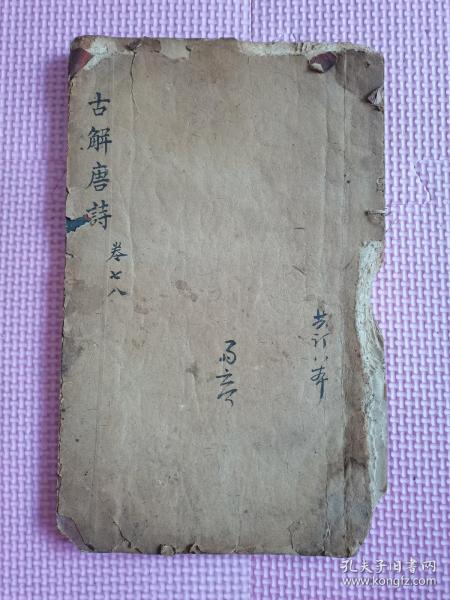 古解唐詩
卷七八
共訂八本
孔夫子旧书网
www.kongfz.com